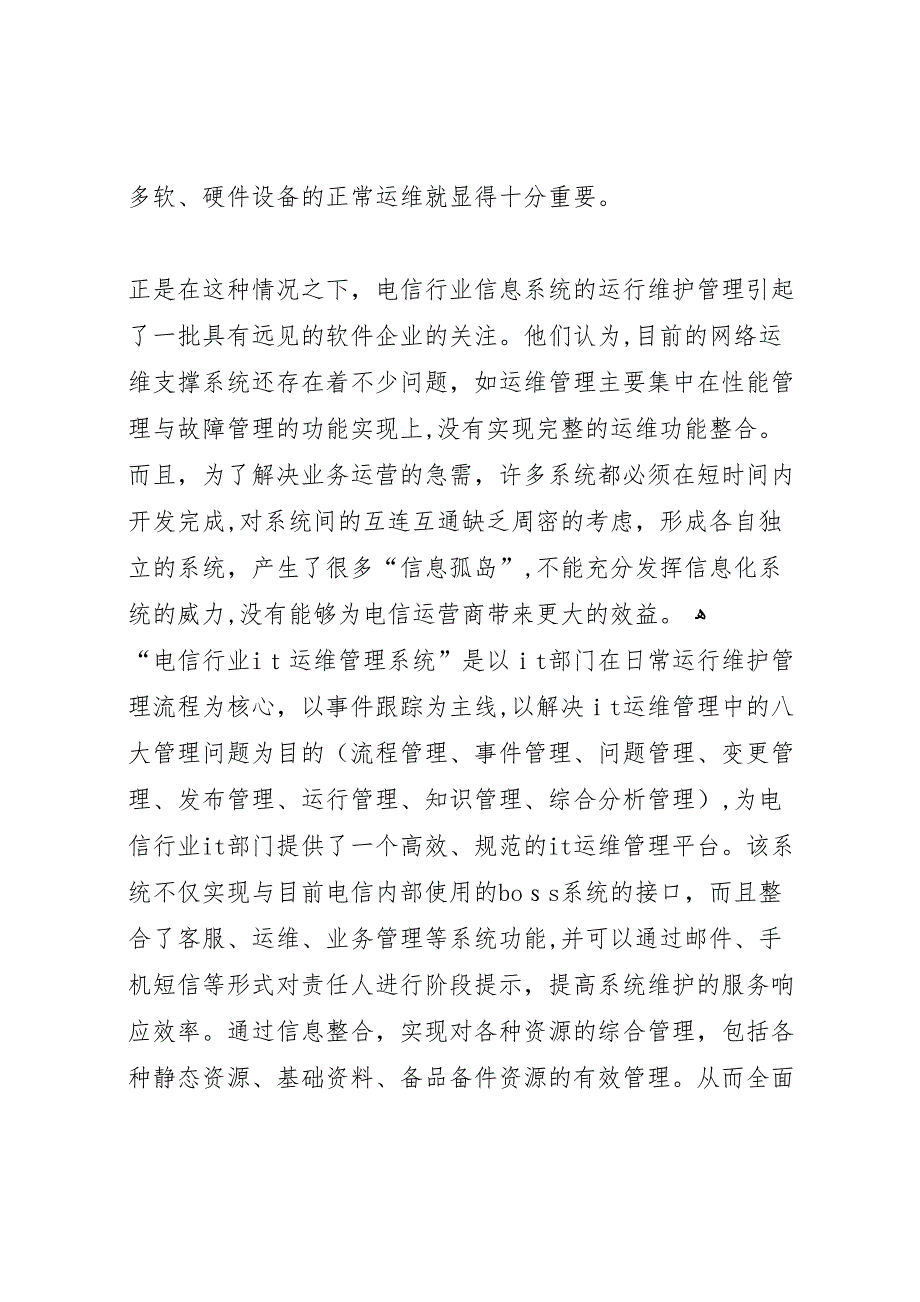 多软、硬件设备的正常运维就显得十分重要。
正是在这种情况之下，电信行业信息系统的运行维护管理引起
了一批具有远见的软件企业的关注。他们认为,目前的网络运
维支撑系统还存在着不少问题，如运维管理主要集中在性能管
理与故障管理的功能实现上,没有实现完整的运维功能整合。
而且，为了解决业务运营的急需，许多系统都必须在短时间内
开发完成,对系统间的互连互通缺乏周密的考虑，形成各自独
立的系统，产生了很多“信息孤岛”,不能充分发挥信息化系
统的威力,没有能够为电信运营商带来更大的效益。 ﻫ
“电信行业it运维管理系统”是以it部门在日常运行维护管
理流程为核心，以事件跟踪为主线,以解决it运维管理中的八
大管理问题为目的（流程管理、事件管理、问题管理、变更管
理、发布管理、运行管理、知识管理、综合分析管理）,为电
信行业it部门提供了一个高效、规范的it运维管理平台。该系
统不仅实现与目前电信内部使用的boss系统的接口，而且整
合了客服、运维、业务管理等系统功能,并可以通过邮件、手
机短信等形式对责任人进行阶段提示，提高系统维护的服务响
应效率。通过信息整合，实现对各种资源的综合管理，包括各
种静态资源、基础资料、备品备件资源的有效管理。从而全面